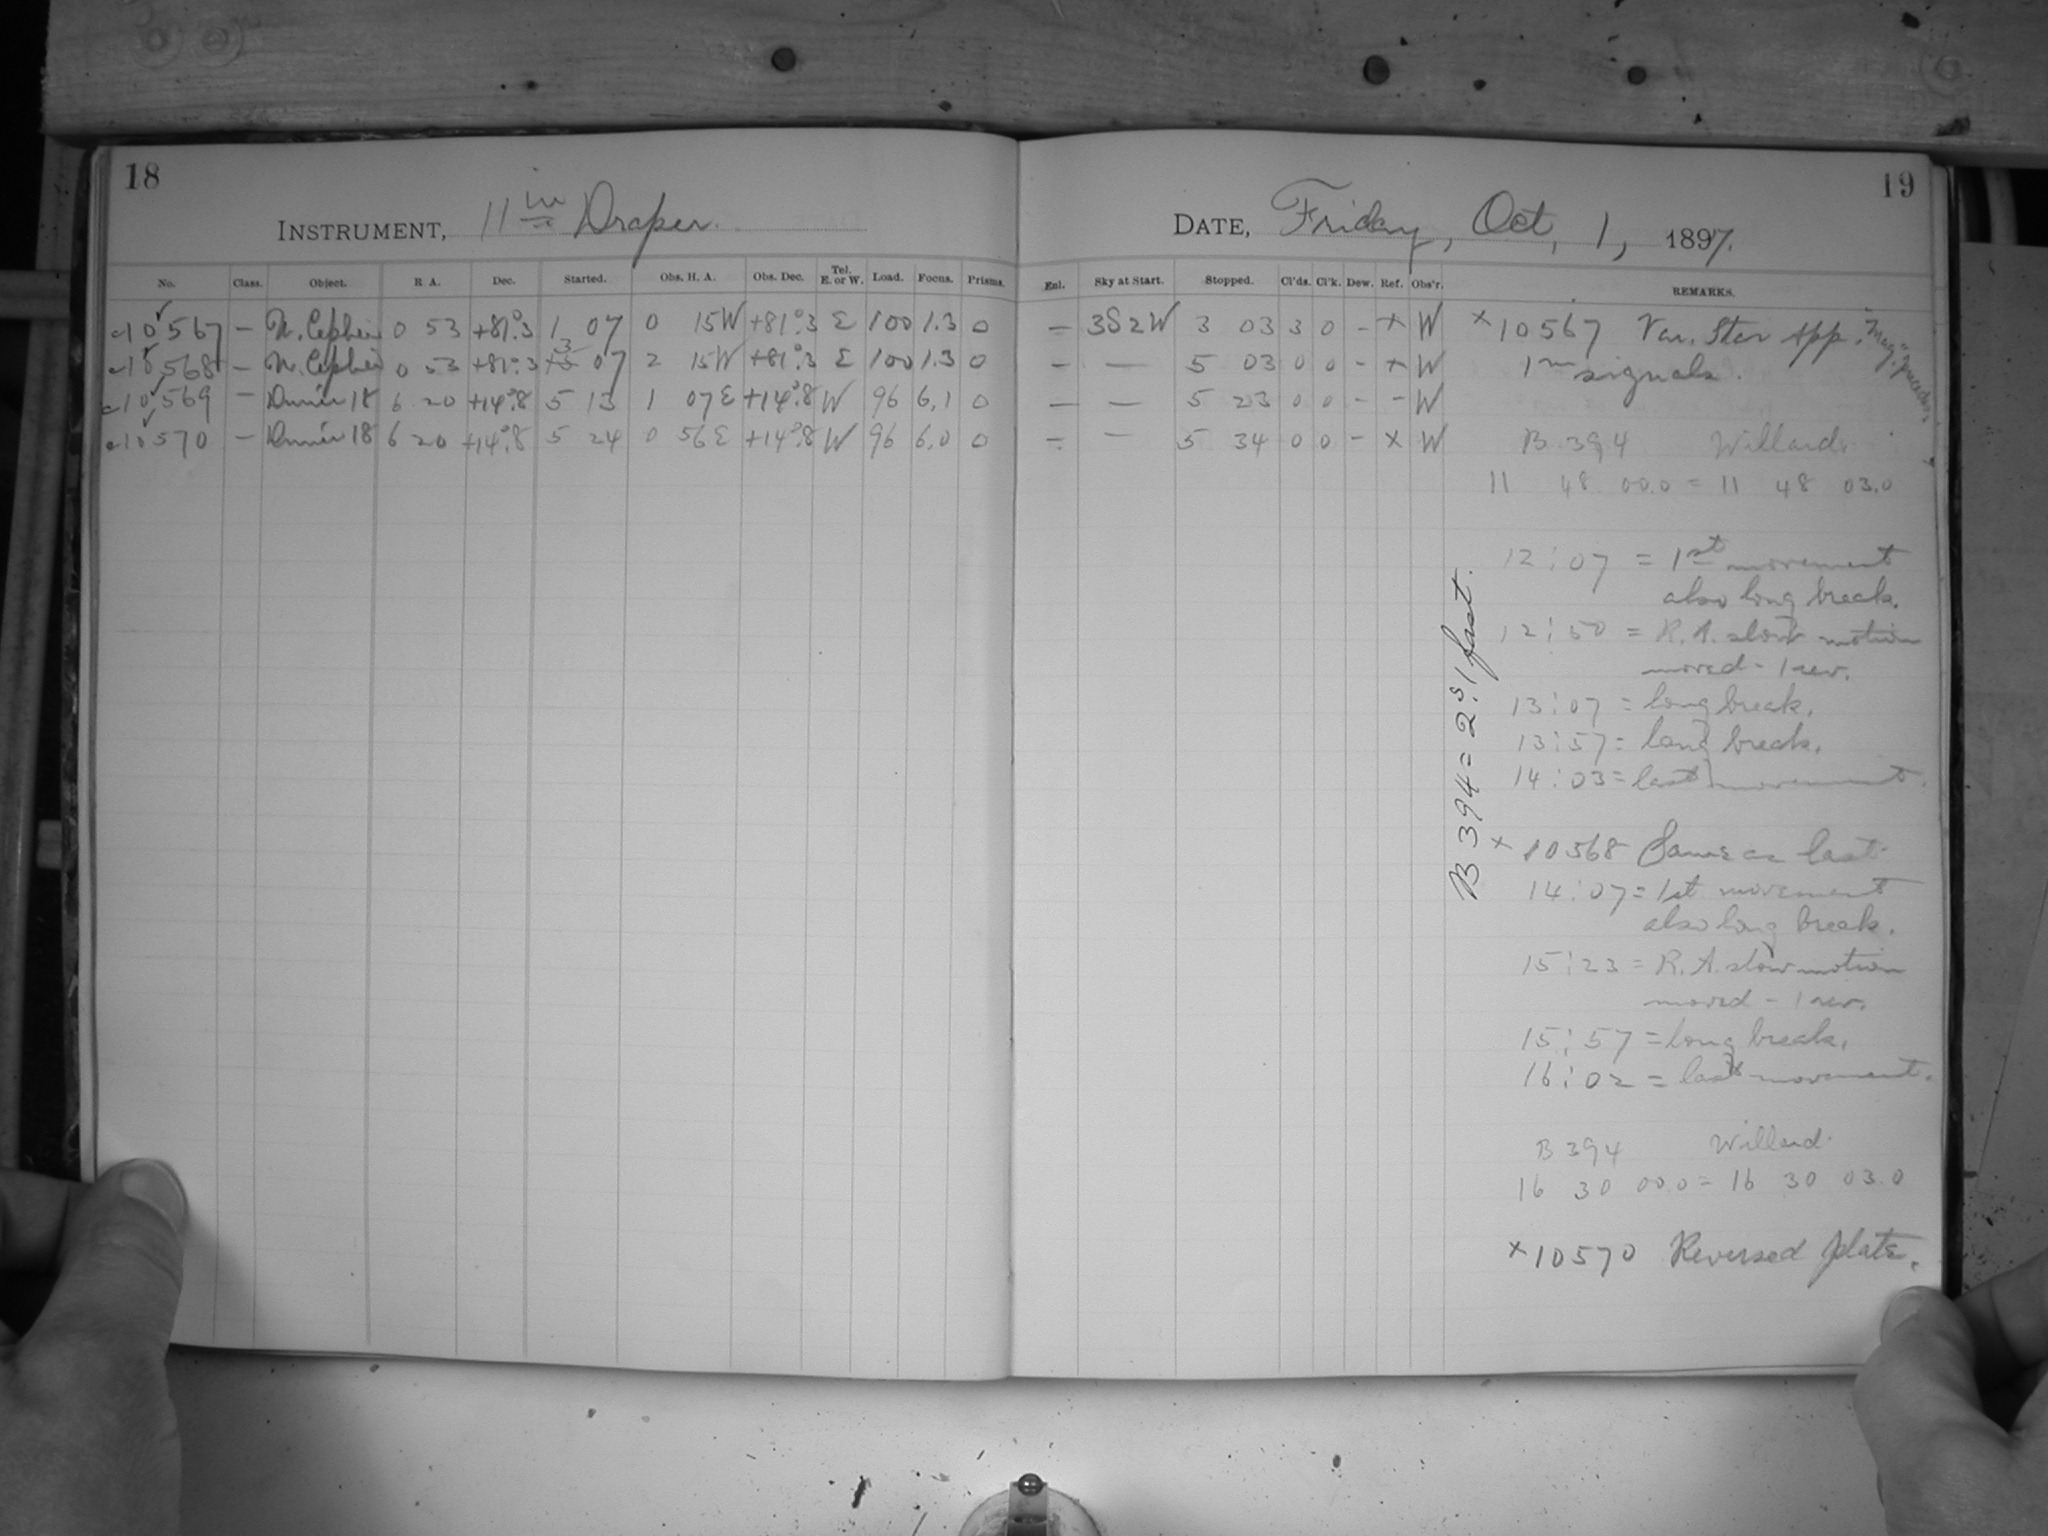 18
INSTRUMENT, 11 in Draper.
No. Class. Object. R A. Dec. Started. Obs. H. A. Obs. Dec. Tel. E. or W. Load. Focus. Prisms.
10567 – U. Cephei 0 53 +81°.3 1 07 0 15W +81°.3 E 100 1.3 0
10568 – U. Cephei 0 53 +81°.3 3 07 2 15W +81°.3 E 100 1.3 0
10569 – Dunér 18 6 20 +14°.8 5 13 1 07E +14°.8 W 96 6.1 0
10570 – Dunér 18 6 20 +14°.8 5 24 0 56E +14°.8 W 96 6.0 0
19
DATE, Friday, Oct, 1, 1897.
Enl. Sky at Start. Stopped. Cl'ds. Cl'k. Dew. Ref. Obs'r. REMARKS.
– 3S2W 3 03 3 0 – x W
– — 5 03 0 0 – x W
– — 5 23 0 0 – – W
– — 5 34 0 0 – x W
x 10567 Var. Star App.
1m signals.
B 394 Willard.
11 48 00.0 = 11 48 03.0
12:07 = 1st movement
also long break.
12:50 = R. A. slow motion
moved – 1 rev.
13:07 = long break.
13:57 = long break.
14:03 = last movement.
B 394 = 2s.1 fast.
x 10568 Same as last.
14:07 = 1st movement
also long break.
15:23 = R. A. slow motion
moved – 1 rev.
15:57 = long break.
16:02 = last movement.
B 394 Willard.
16 30 00.0 = 16 30 03.0
x 10570 Reversed plate.